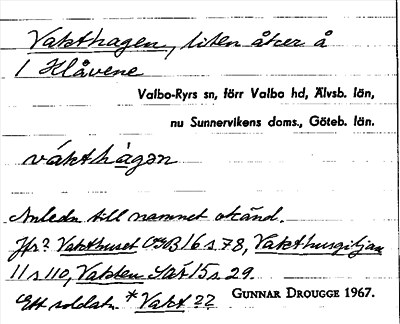 Vakthagen, liten åker å
1 Hlåvene
Valbo-Ryrs sn, förr Valbo hd, Älvsb. län,
nu Sunnervikens doms., Göteb. län.
våkthàgən
Anledn till namnet okänd.
Jfr? Vakthuset OGB 16 s 78, Vakthusgiljan
11 s 110, Vakten SÄ 15 s 29.
Ett soldatn *Vakt ??
GUNNAR DROUGGE 1967.